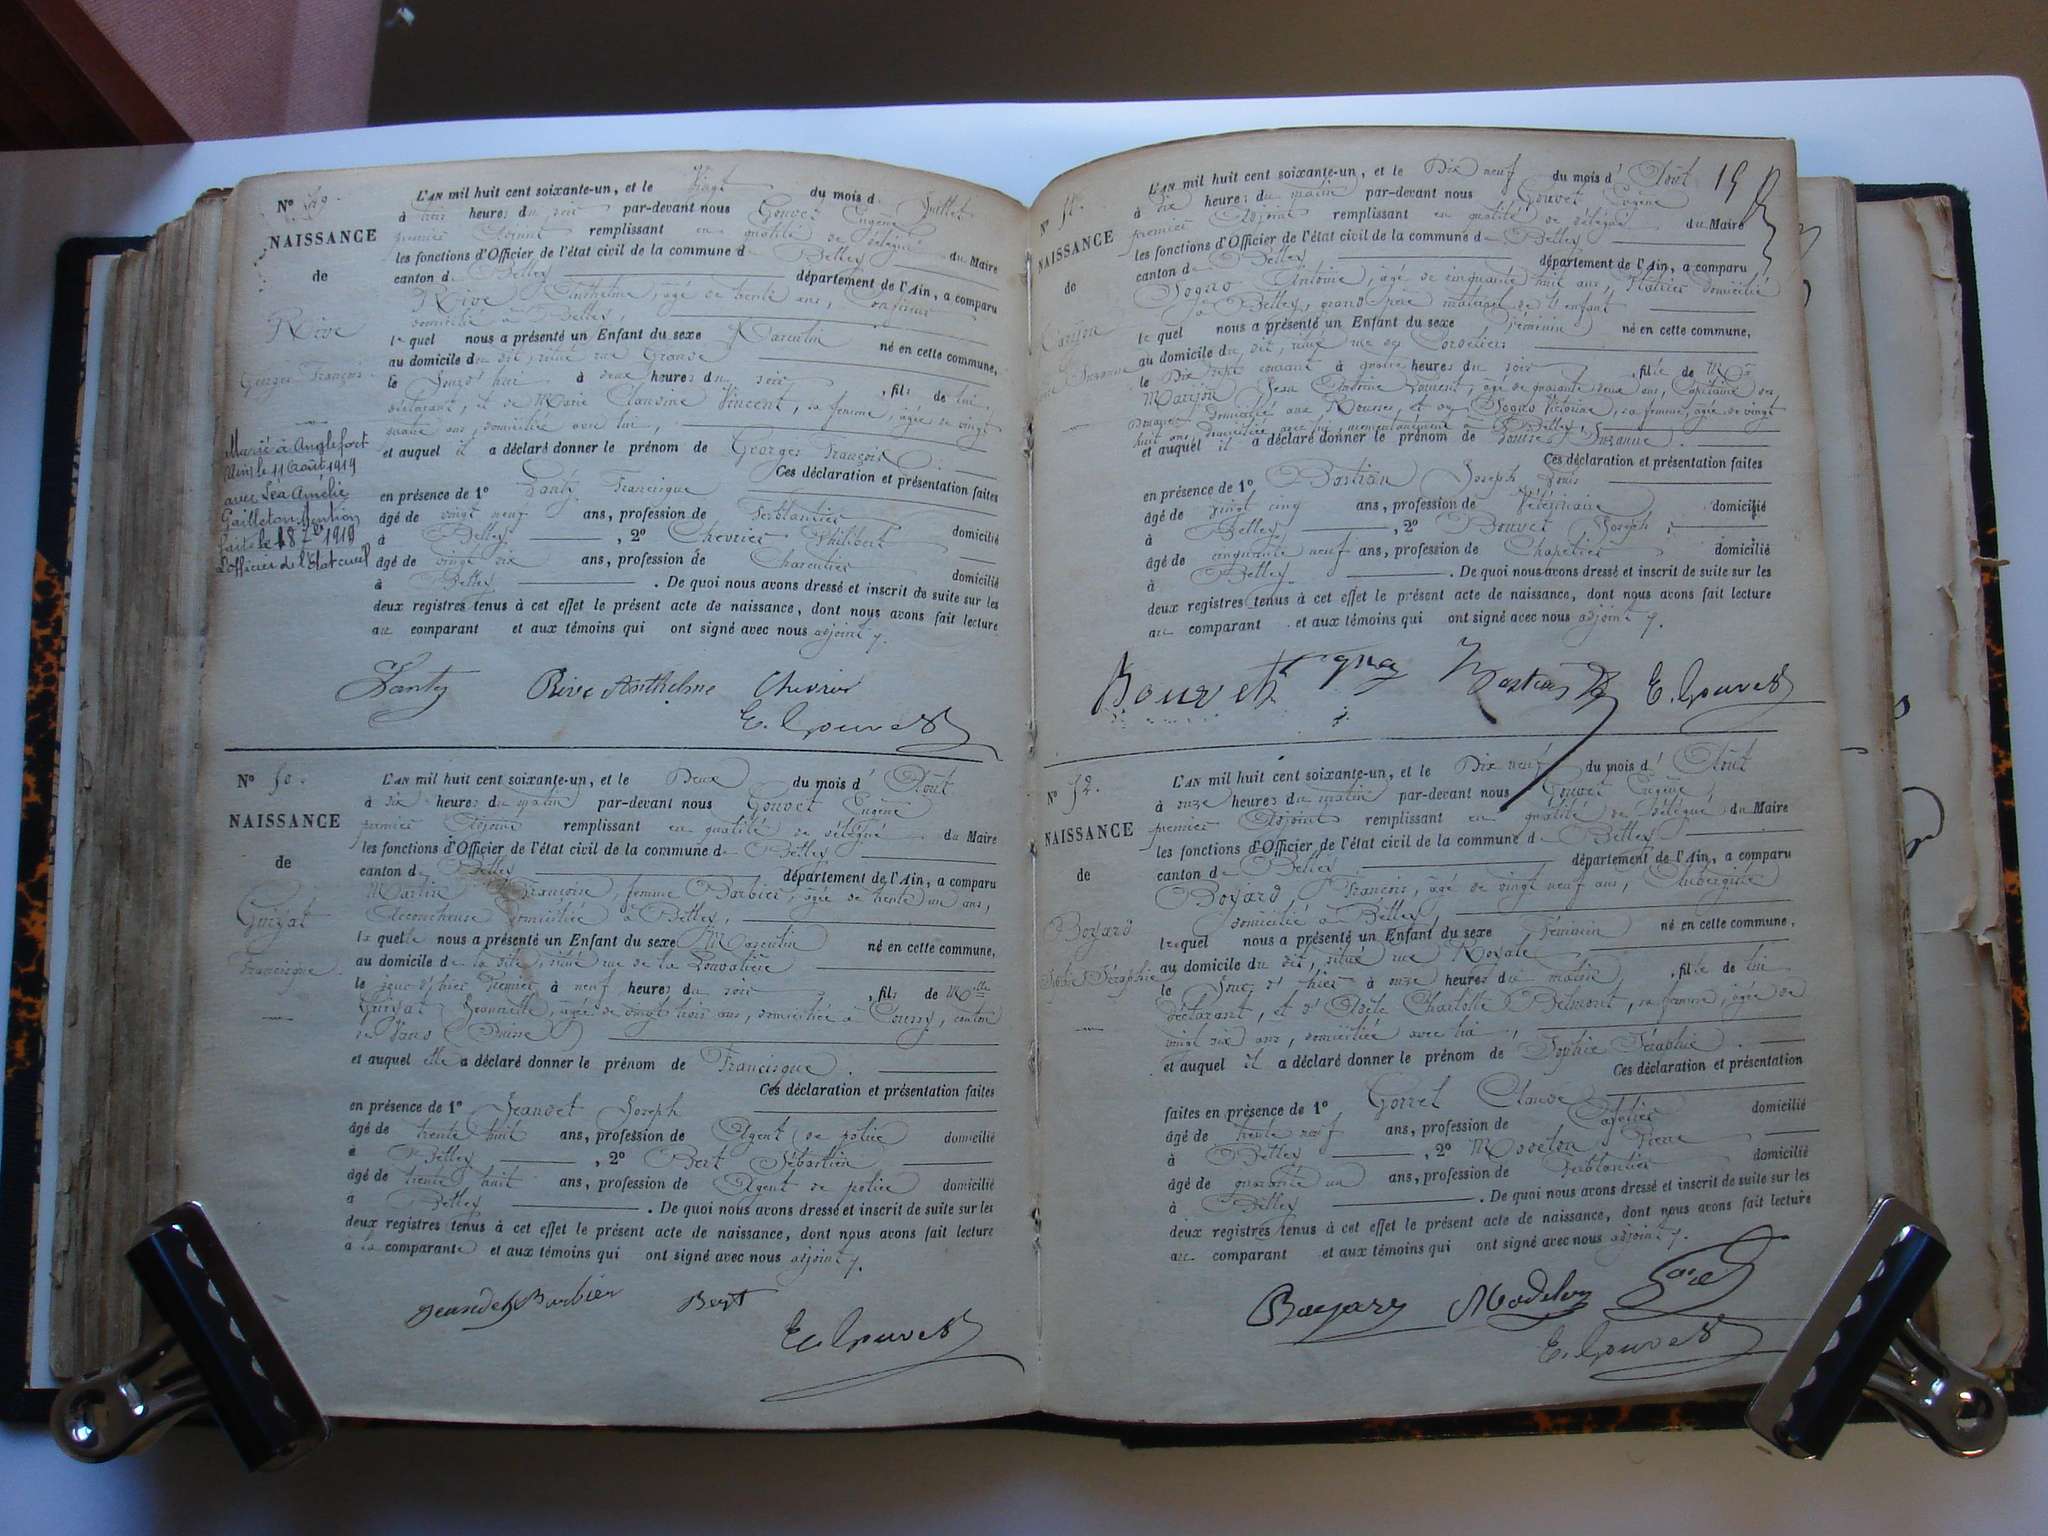 N° 49.
NAISSANCE
de
Rive
Georges François
Marié à Anglefort
Ain le 11 Août 1919
avec Léa Amélie
Gailleton Mention
faite le 1919
L'officier de l'Etat civil
L'AN mil huit cent soixante-un, et le Vingt du mois d Juillet
à trois heures du soir par-devant nous Gouvet Eugène
premier Adjoint remplissant en qualité de délégué du Maire
les fonctions d'Officier de l'état civil de la commune d Belley
canton d Belley département de l'Ain, a comparu
Rive Anthelme, âgé de trente ans,
domicilié à Belley,
le quel nous a présenté un Enfant du sexe Masculin né en cette commune,
au domicile du dit, situé rue Grande
le Jourd'hui à deux heures du soir, fils de lui
déclarant, et de Marie Claudine Vincent, sa femme, âgée de vingt
quatre ans, domiciliée avec lui,
et auquel il a déclaré donner le prénom de Georges François.
Ces déclaration et présentation faites
en présence de 1° Lanty Francisque
âgé de vingt neuf ans, profession de ferblantier domicilié
à Belley, 2° Chevrier Philibert
âgé de vingt six ans, profession de Charcutier domicilié
à Belley. De quoi nous avons dressé et inscrit de suite sur les
deux registres tenus à cet effet le présent acte de naissance, dont nous avons fait lecture
au comparant et aux témoins qui ont signé avec nous adjoint
Lanty Rive Anthelme Chevrier
E. Gouvet
N° 50.
NAISSANCE
de
Guizat
Francisque
L'AN mil huit cent soixante-un, et le Deux du mois d' Août
à dix heures du matin par-devant nous Gouvet Eugène
premier Adjoint remplissant en qualité de délégué du Maire
les fonctions d'Officier de l'état civil de la commune d Belley
canton d Belley département de l'Ain, a comparu
Martin Françoise, femme Barbier, âgée de trente un ans,
Accoucheuse domiciliée à Belley,
la quelle nous a présenté un Enfant du sexe Masculin né en cette commune,
au domicile de la dite, situé rue de la
le jour d'hier Premier à neuf heures du soir, fils de Melle
Guizat Jeannette, âgée de vingt trois ans, domiciliée à canton
de
et auquel elle a déclaré donner le prénom de Francisque.
Ces déclaration et présentation faites
en présence de 1° Jeandet Joseph
âgé de trente huit ans, profession de Agent de police domicilié
à Belley, 2° Bert Sébastien
âgé de trente huit ans, profession de Agent de police domicilié
à Belley. De quoi nous avons dressé et inscrit de suite sur les
deux registres tenus à cet effet le présent acte de naissance, dont nous avons fait lecture
à la comparante et aux témoins qui ont signé avec nous adjoint
Jeandet Barbier Bert
E. Gouvet
19
N° 51.
NAISSANCE
de
Marijon
Suzanne
L'AN mil huit cent soixante-un, et le Dix neuf du mois d' Août
à dix heures du matin par-devant nous Gouvet Eugène
premier Adjoint remplissant en qualité de délégué du Maire
les fonctions d'Officier de l'état civil de la commune d Belley
canton d Belley département de l'Ain, a comparu
Sogno Antoine, âgé de cinquante huit ans, Plâtrier domicilié
à Belley, grand père maternel de l'enfant
le quel nous a présenté un Enfant du sexe féminin né en cette commune,
au domicile du dit, situé rue des Cordeliers
le Dix sept courant à quatre heures du soir, fille de Mr
Marijon Jean Antoine Laurent, âgé de quarante deux ans, Capitaine des
Douanes domicilié aux Rousses, et de Sogno Victorine, sa femme, âgée de vingt
huit ans, domiciliée avec lui, momentanément à Belley,
et auquel il a déclaré donner le prénom de Louise Suzanne.
Ces déclaration et présentation faites
en présence de 1° Bastian Joseph Louis
âgé de vingt cinq ans, profession de Vétérinaire domicilié
à Belley, 2° Bouvet Joseph,
âgé de cinquante neuf ans, profession de Chapelier domicilié
à Belley. De quoi nous avons dressé et inscrit de suite sur les
deux registres tenus à cet effet le présent acte de naissance, dont nous avons fait lecture
au comparant et aux témoins qui ont signé avec nous adjoint
Bouvet Bastian E. Gouvet
N° 52.
NAISSANCE
de
Boyard
Sophie Séraphie
L'AN mil huit cent soixante-un, et le Dix neuf du mois d' Août
à onze heures du matin par-devant nous Gouvet Eugène,
premier Adjoint remplissant en qualité de délégué du Maire
les fonctions d'Officier de l'état civil de la commune d Belley
canton d Belley département de l'Ain, a comparu
Boyard François, âgé de vingt neuf ans, Aubergiste
domicilié à Belley,
lequel nous a présenté un Enfant du sexe féminin né en cette commune,
au domicile du dit, situé rue Royale
le Jour d'hier à onze heures du matin, fille de lui
déclarant, et d'Adèle Charlotte Belmont, sa femme, âgée de
vingt six ans, domiciliée avec lui,
et auquel il a déclaré donner le prénom de Sophie Séraphie.
Ces déclaration et présentation
faites en présence de 1° Gorrel Claude
âgé de trente neuf ans, profession de domicilié
à Belley, 2° Modelon Pierre
âgé de quarante un ans, profession de ferblantier domicilié
à Belley. De quoi nous avons dressé et inscrit de suite sur les
deux registres tenus à cet effet le présent acte de naissance, dont nous avons fait lecture
au comparant et aux témoins qui ont signé avec nous adjoint
Boyard Modelon
E. Gouvet